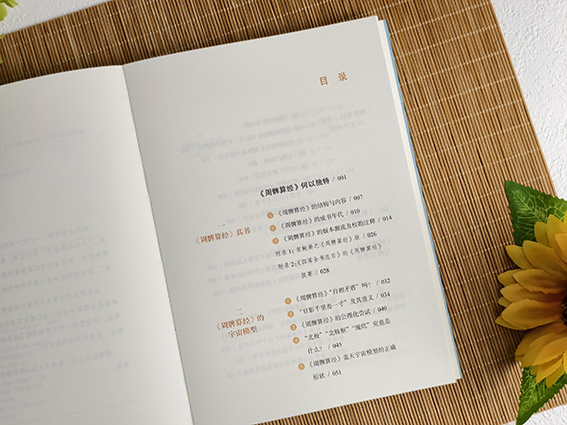 目 录
《周髀算经》何以独特 / 001
一
《周髀算经》其书
1 《周髀算经》的结构与内容 / 007
2 《周髀算经》的成书年代 / 010
3 《周髀算经》的版本源流及校勘注释 / 014
附录1：宋鲍澣之《周髀算经》跋 / 026
附录2：《四库全书总目》的《周髀算经》
提要 / 028
二
《周髀算经》的
宇宙模型
1 《周髀算经》“自相矛盾”吗？ / 032
2 “日影千里差一寸”及其意义 / 034
3 《周髀算经》的公理化尝试 / 040
4 “北极”“北极枢”“璇玑”究竟是
什么？ / 045
5 《周髀算经》盖天宇宙模型的正确
形状 / 051